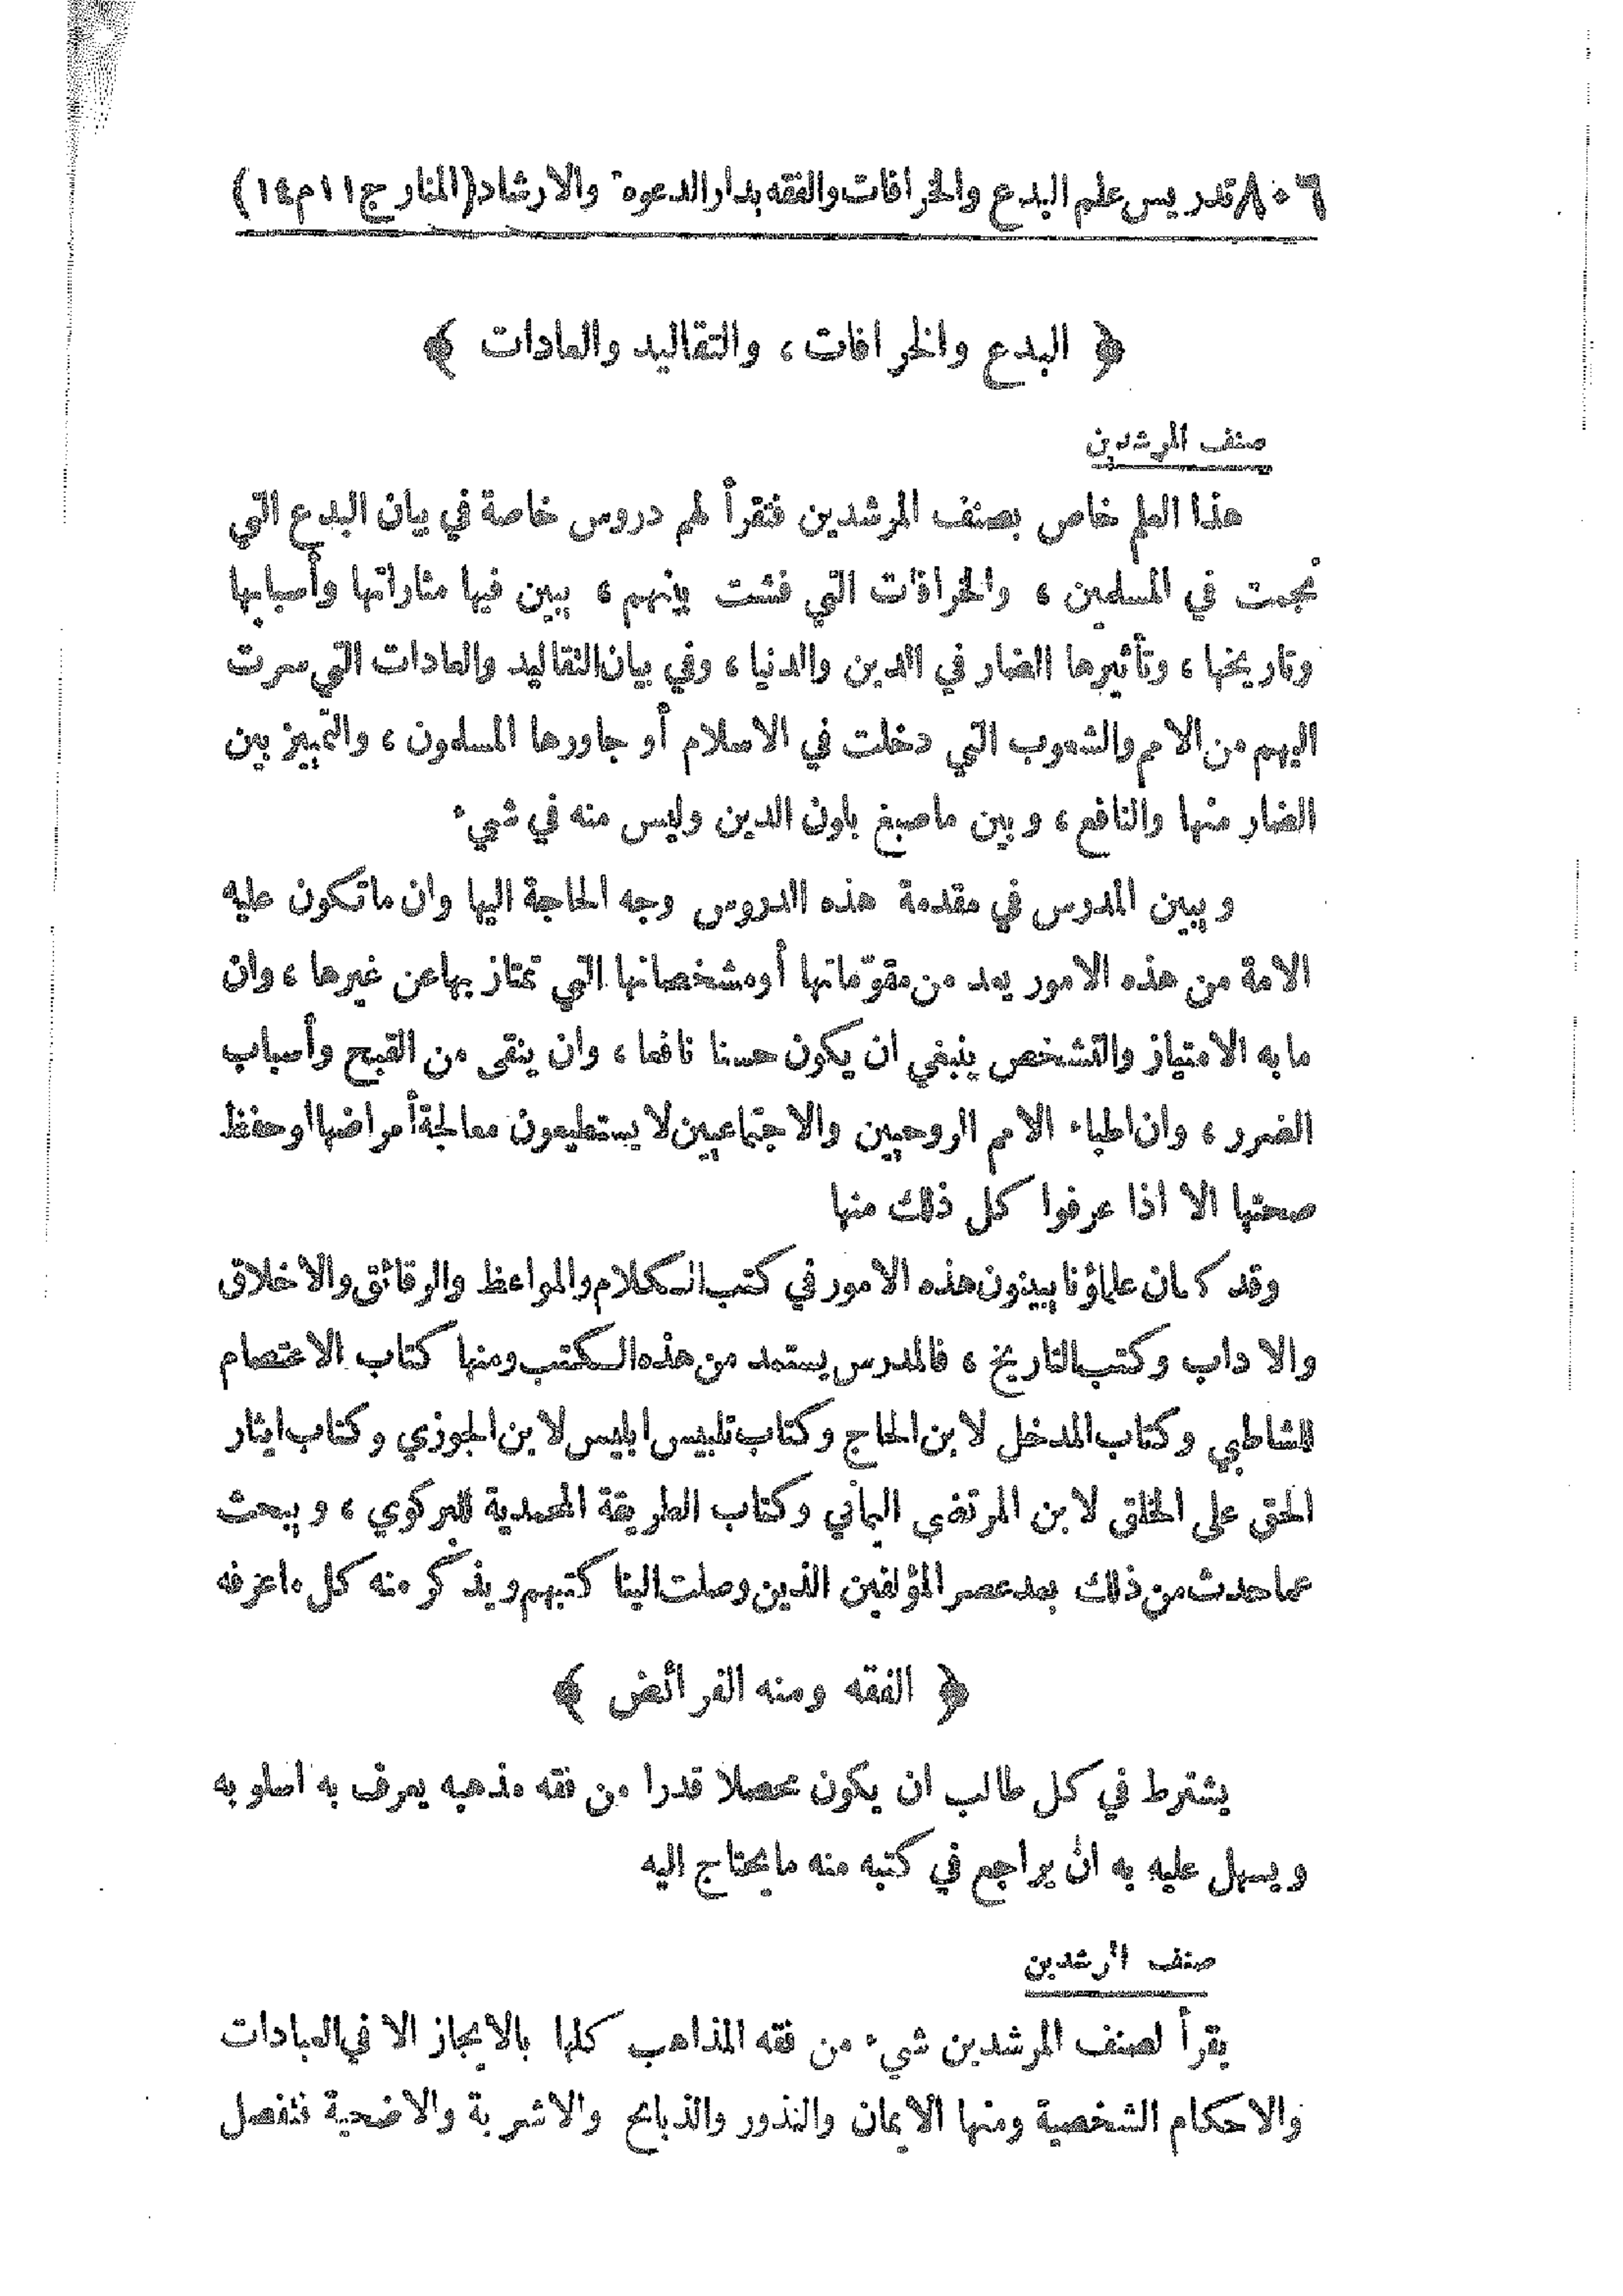 ٨٠٦ تدريس علم البدع والخرافات والفقه بدار الدعوة والارشاد (المنار ج ١١ م ١٤)
﴿ البدع والخرافات ، والتقاليد والعادات ﴾
صنف المرشدين
هذا العلم خاص بصنف المرشدين فتقرأ لهم دروس خاصة في بيان البدع التي
نجمت في المسلمين ، والخرافات التي فشت بينهم ، يبين فيها مثاراتها وأسبابها
وتاريخها ، وتأثيرها الضار في الدين والدنيا ، وفي بيان التقاليد والعادات التي سرت
اليهم من الامم والشعوب التي دخلت في الاسلام أو جاورها المسلمون ، والتمييز بين
الضار منها والنافع ، وبين ما صبغ بلون الدين وليس منه في شيء
ويبين المدرس في مقدمة هذه الدروس وجه الحاجة اليها وان ما تكون عليه
الامة من هذه الامور يعد من مقوّماتها أو مشخصاتها التي تمتاز بها عن غيرها ، وان
ما به الامتياز والتشخص ينبغي ان يكون حسنا نافعا ، وان ينقى من القبح وأسباب
الضرر ، وان اطباء الامم الروحيين والاجتماعيين لا يستطيعون معالجة أمراضها او حفظ
صحتها الا اذا عرفوا كل ذلك منها
وقد كان علماؤنا يبينون هذه الامور في كتب الكلام والمواعظ والرقائق والاخلاق
والاداب وكتب التاريخ ، فالمدرس يستمد من هذه الكتب ومنها كتاب الاعتصام
للشاطبي وكتاب المدخل لابن الحاج وكتاب تلبيس ابليس لابن الجوزي وكتاب ايثار
الحق على الخلق لابن المرتضى اليماني وكتاب الطريقة المحمدية للبركوي ، ويبحث
عما حدث من ذلك بعد عصر المؤلفين الذين وصلت الينا كتبهم ويذكر منه كل ما عرفه
﴿ الفقه ومنه الفرائض ﴾
يشترط في كل طالب ان يكون محصلا قدرا من فقه مذهبه يعرف به اسلوبه
ويسهل عليه به ان يراجع في كتبه منه ما يحتاج اليه
صنف المرشدين
يقرأ لصنف المرشدين شيء من فقه المذاهب كلها بالايجاز الا في العبادات
والاحكام الشخصية ومنها الايمان والنذور والذبائح والاشربة والاضحية فتفصل